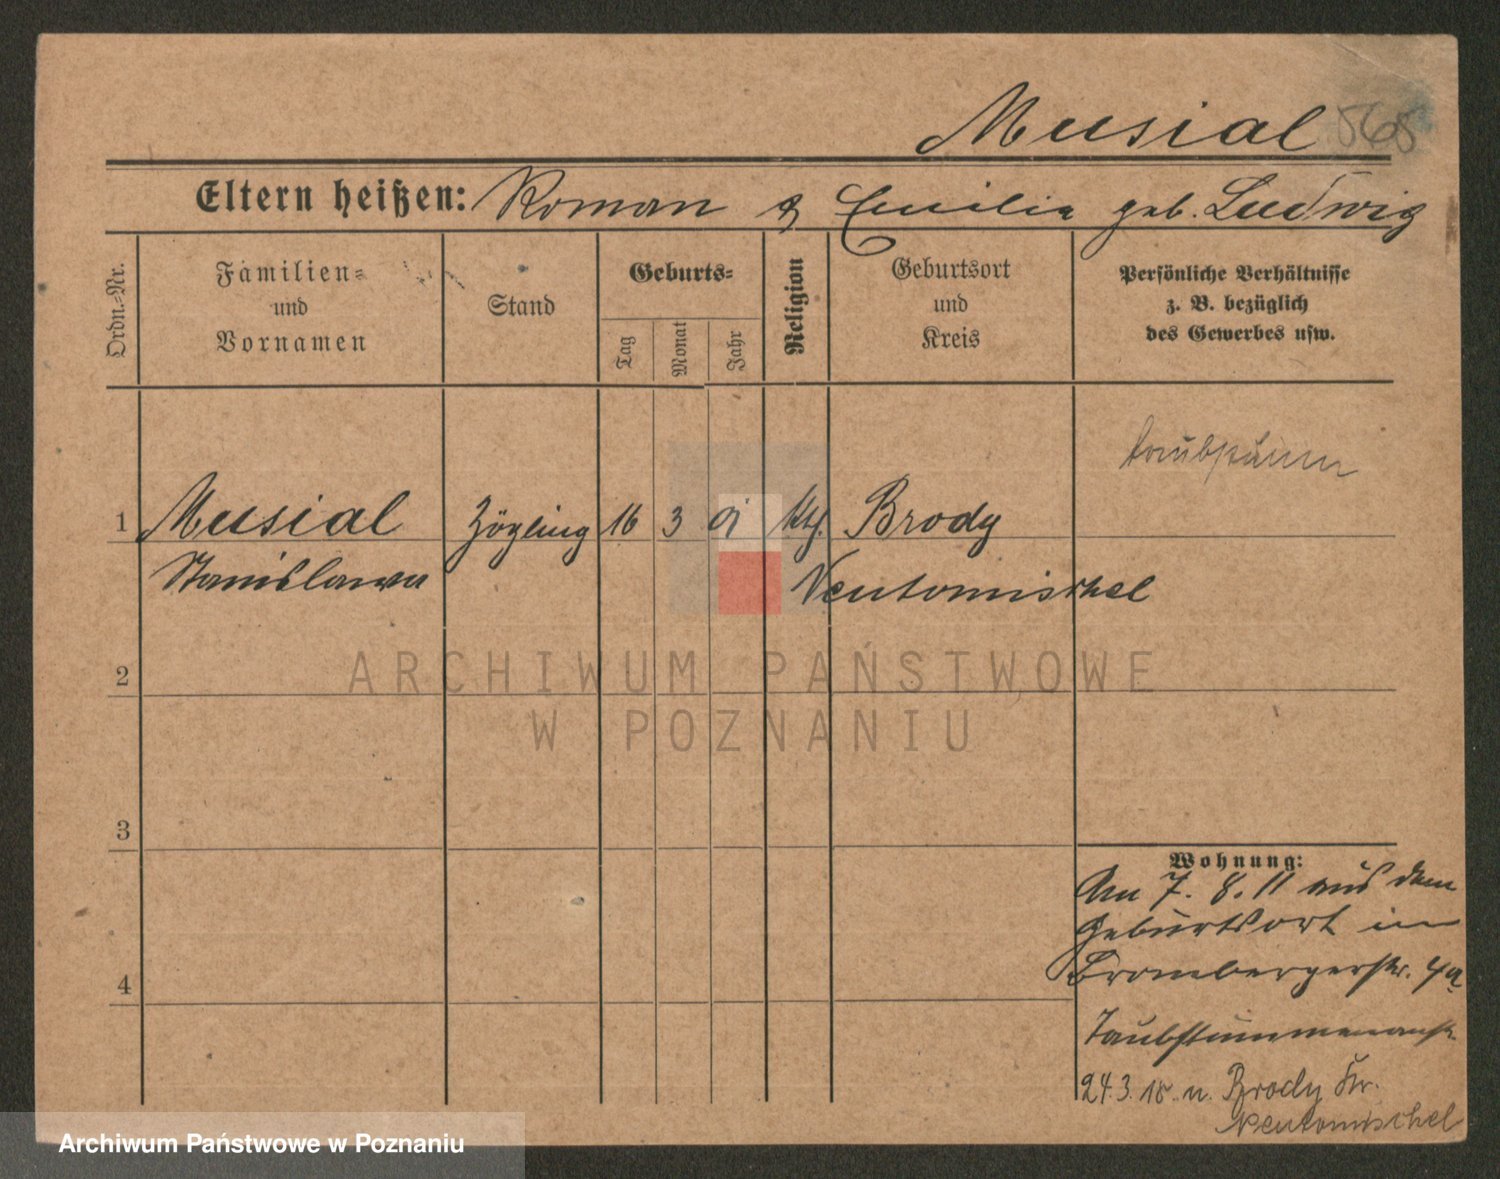 Musial 565
Eltern heißen: Roman & Emilie geb. Ludwig
Ordn.-Nr.
Familien-
und
Vornamen
Stand
Geburts-
Tag
Monat
Jahr
Religion
Geburtsort
und
Kreis
Persönliche Verhältnisse
z. B. bezüglich
des Gewerbes usw.
taubstumm
1 Musial Zögling 16 3 01 kth. Brody
Stanislawa Neutomischel
2
3
4
Wohnung:
Am 7. 8. 11 aus dem
Geburtsort in
Brombergerstr. 4a
Taubstummenanst.
24.3.18 n. Brody Kr.
Neutomischel
ARCHIWUM PAŃSTWOWE
W POZNANIU
Archiwum Państwowe w Poznaniu